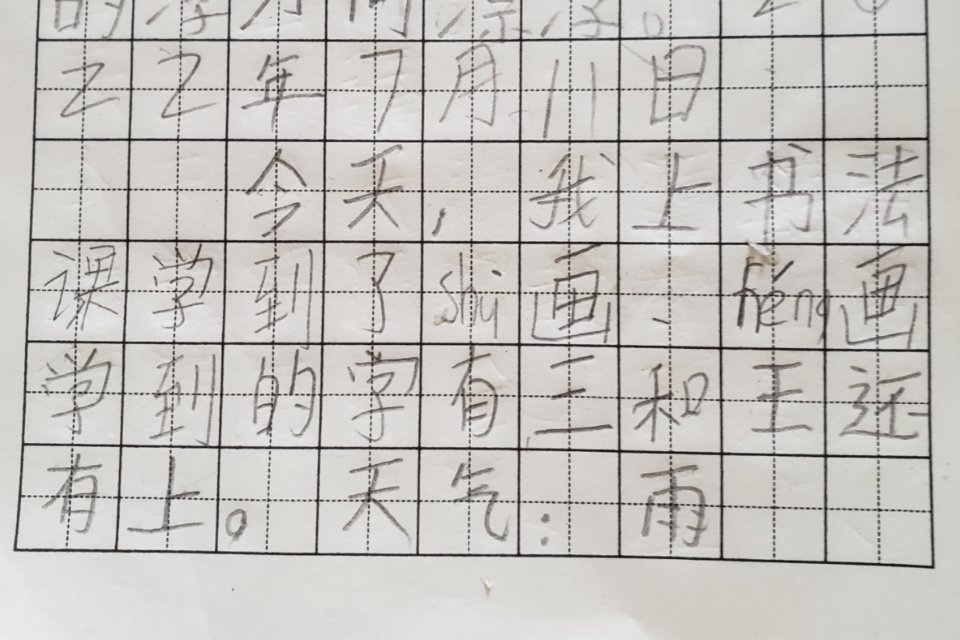 的 。20
22年7月11日
今天，我上书法
课学到了shù画、héng画
学到的学有三和王还
有上。天气：雨